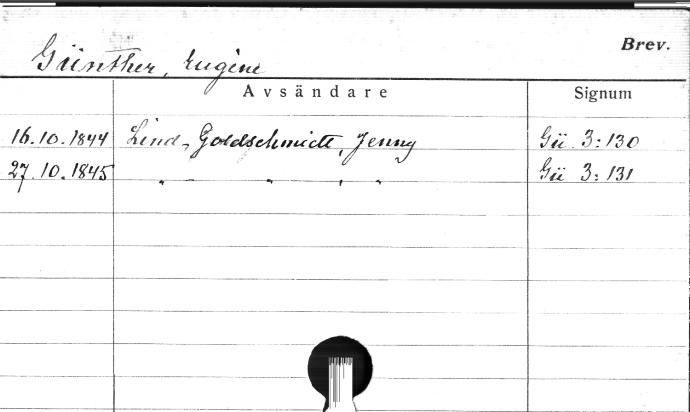 Brev.
Günther, Eugène
Avsändare Signum
16.10.1844 Lind-Goldschmidt, Jenny Gü 3:130
27.10.1845 " " " " Gü 3:131